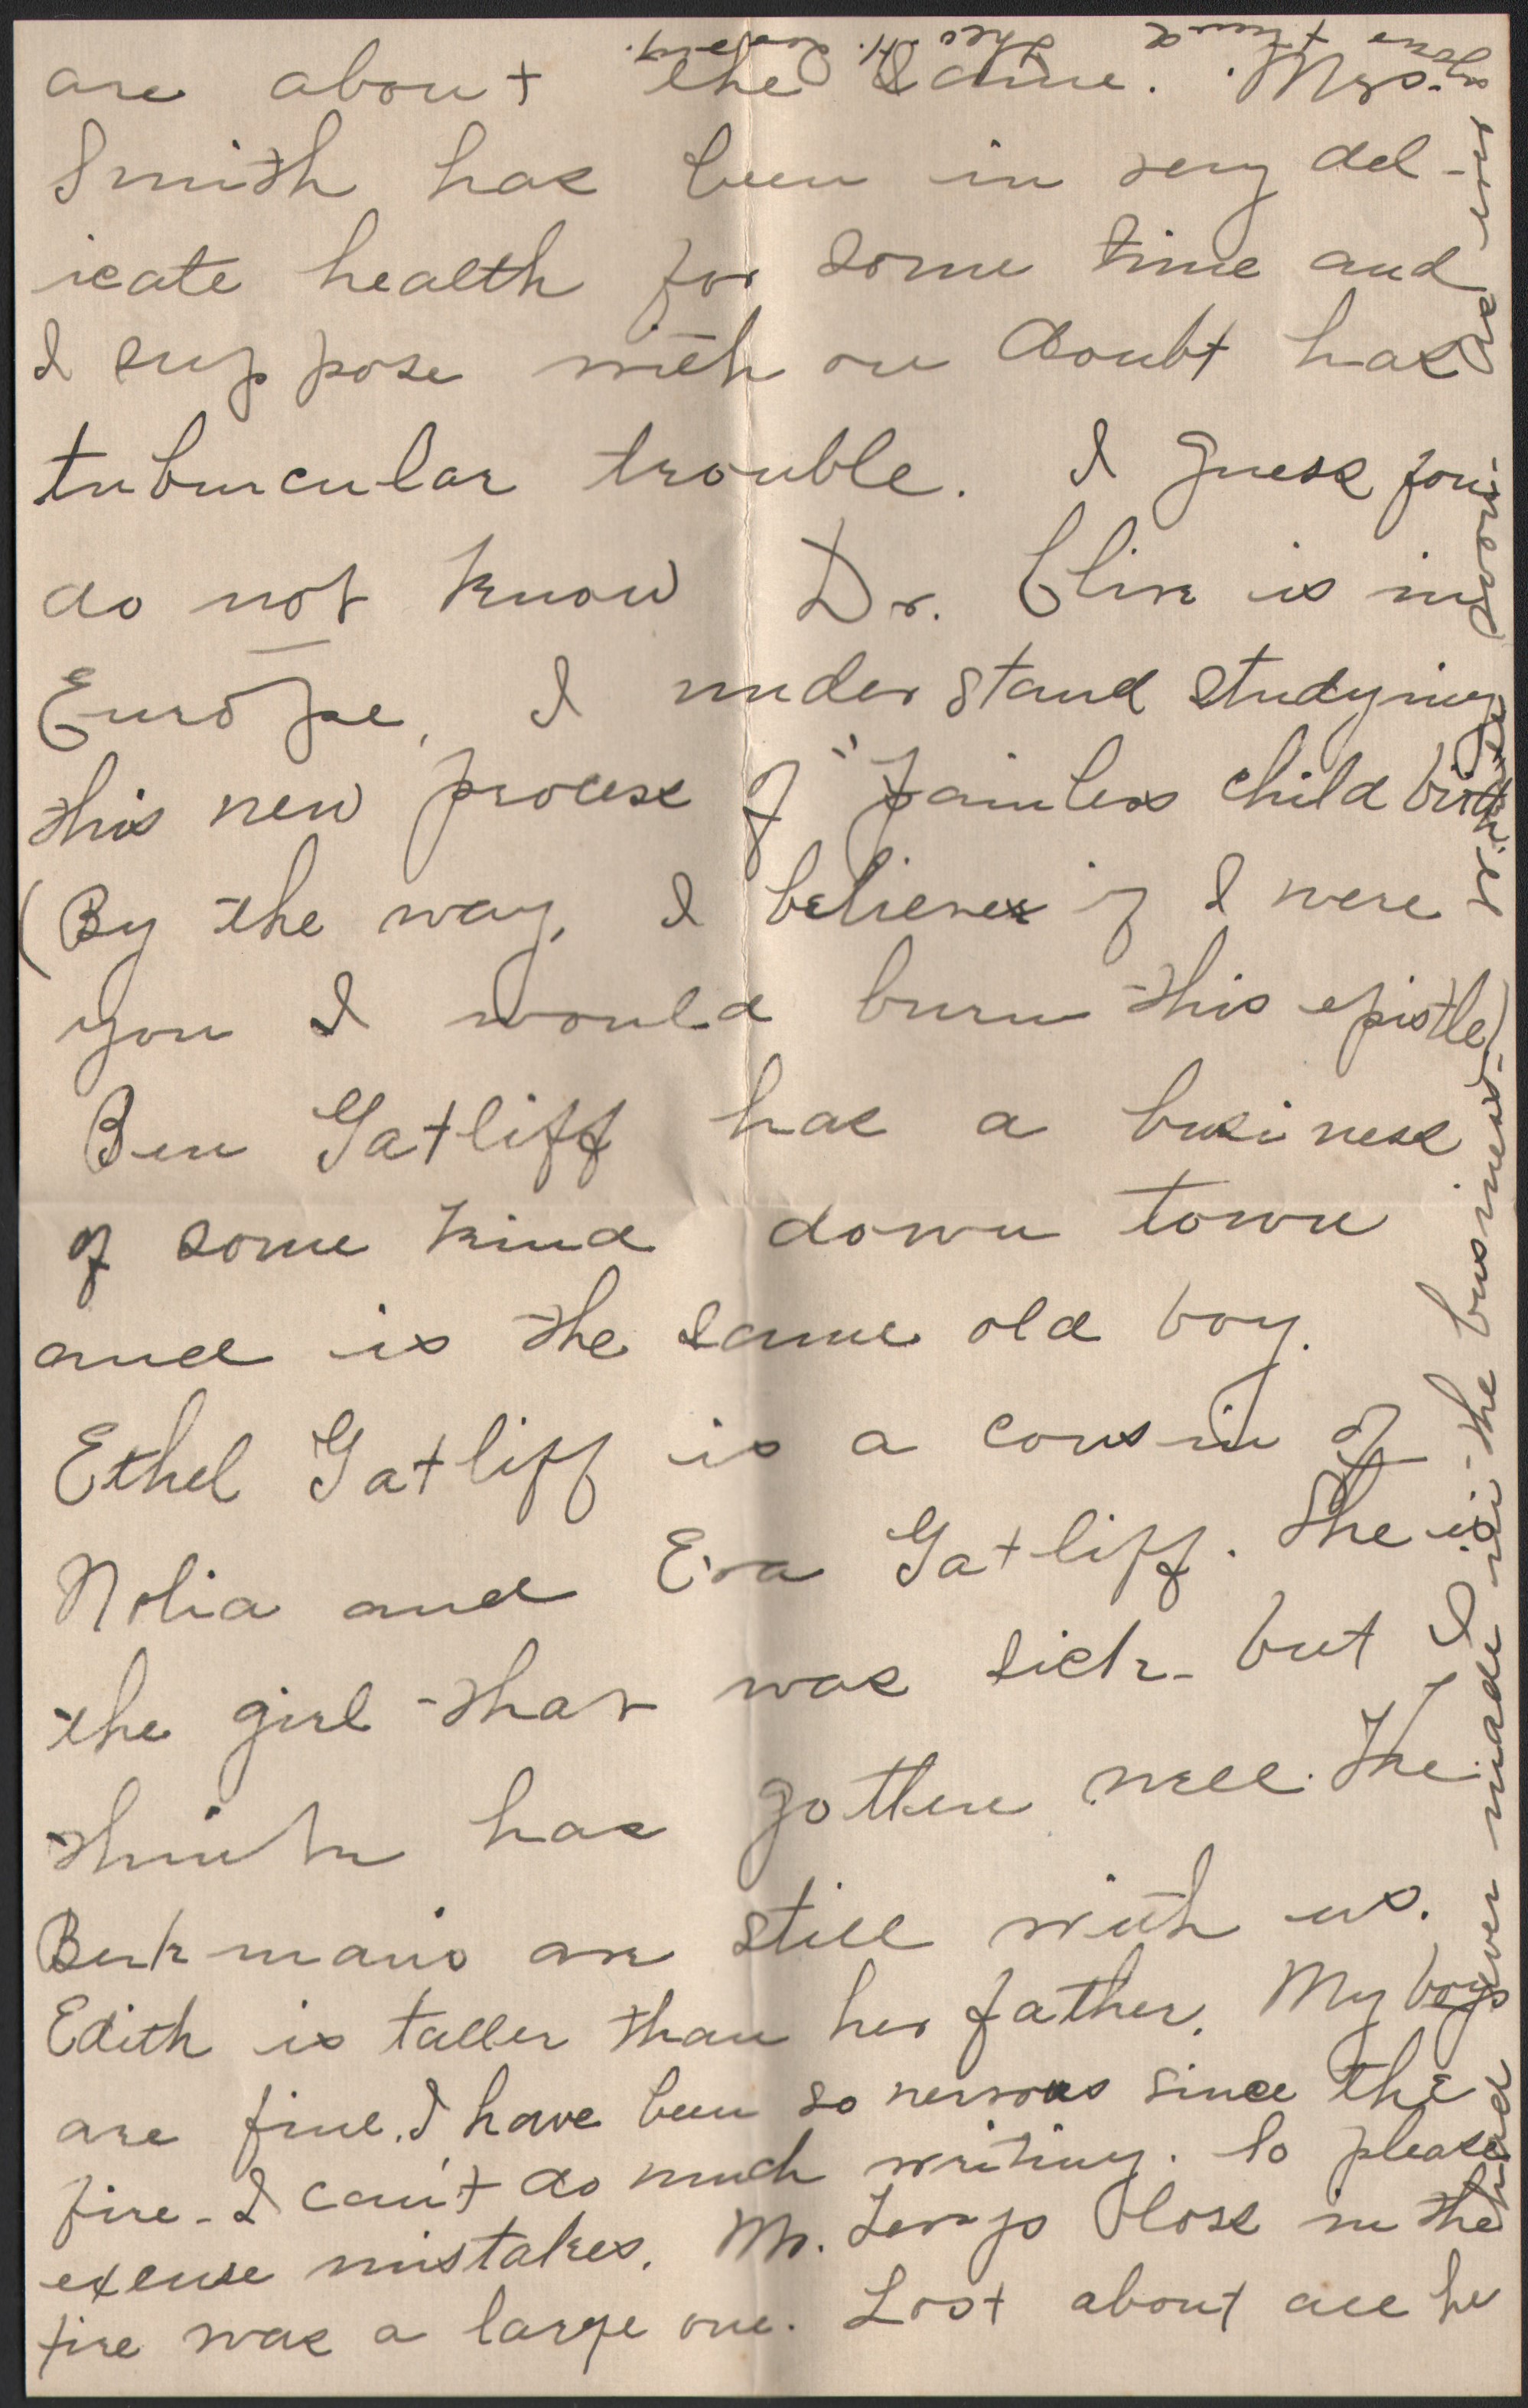 are about the same. Mrs.
Smith has been in very del-
icate health for some time and
I suppose with ou doubt has
tuburcular trouble. I guess you
do not know Dr. Cline is in
Europe, I understand studying
this new process of "painless child birth".
(By the way, I believe if I were
you I would burn this epistle)
Ben Gatliff has a business
of some kind down town
and is the same old boy.
Ethel Gatliff is a cousin of
Nolia and Eva Gatliff. She is
the girl that was sick - but I
think has gotten well. The
Berkmans are still with us.
Edith is taller than her father. My boys
are fine. I have been so nervous since the
fire - I can't do much writing. So please
excuse mistakes. Mr. loss in the
fire was a large one. Lost about all he
had ever made in the business.
Write as ever
Your friend
Theo H.